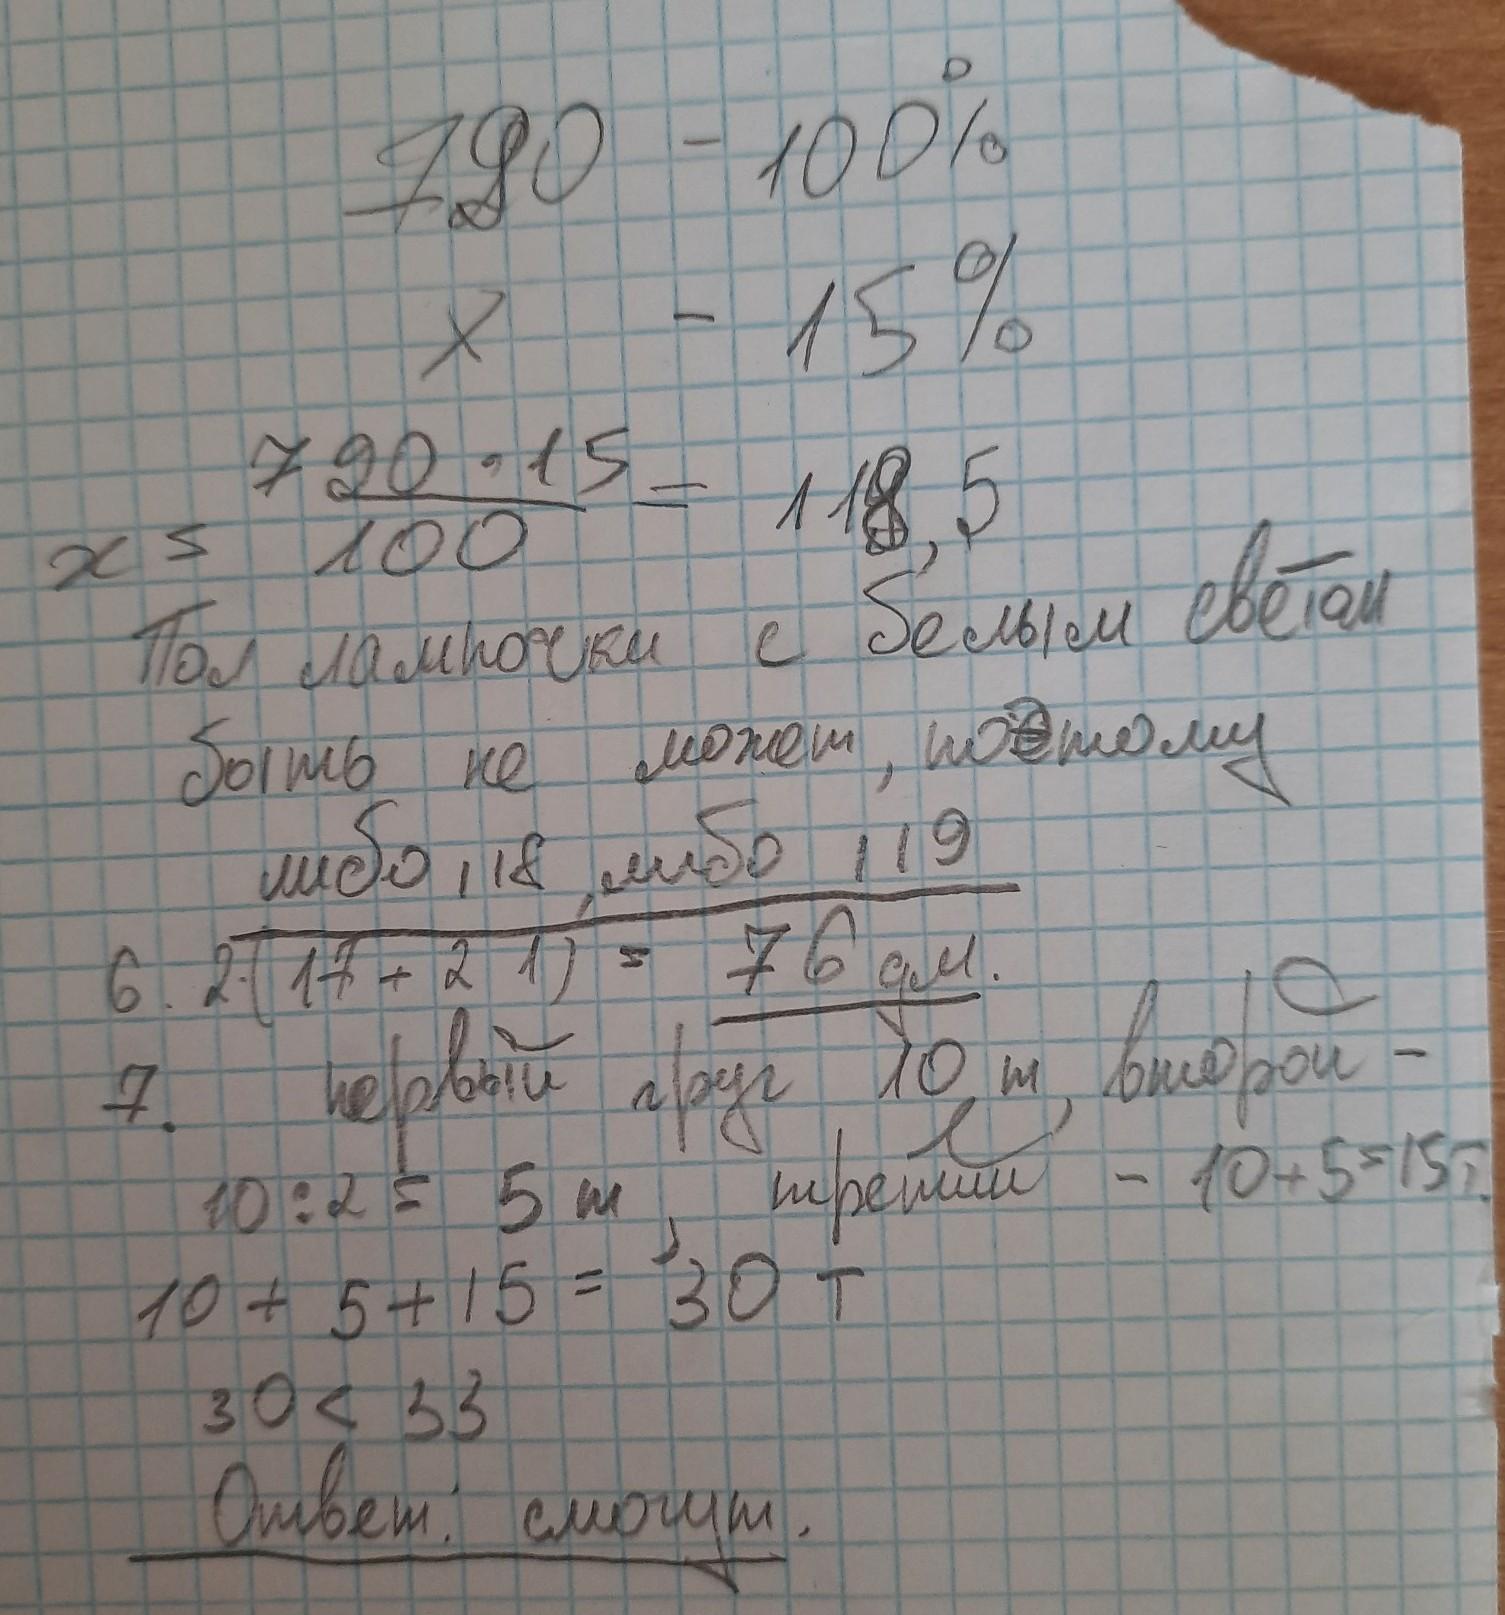 790 - 100%
x - 15%
x = 790 · 15 / 100 = 118,5
Пол лампочки с белым светом
быть не может, поэтому
либо 118, либо 119
6. 2·(17 + 21) = 76 дм.
7. первый груз 10 т, второй -
10 : 2 = 5 т, третий - 10 + 5 = 15 т.
10 + 5 + 15 = 30 т
30 < 33
Ответ: смогут.